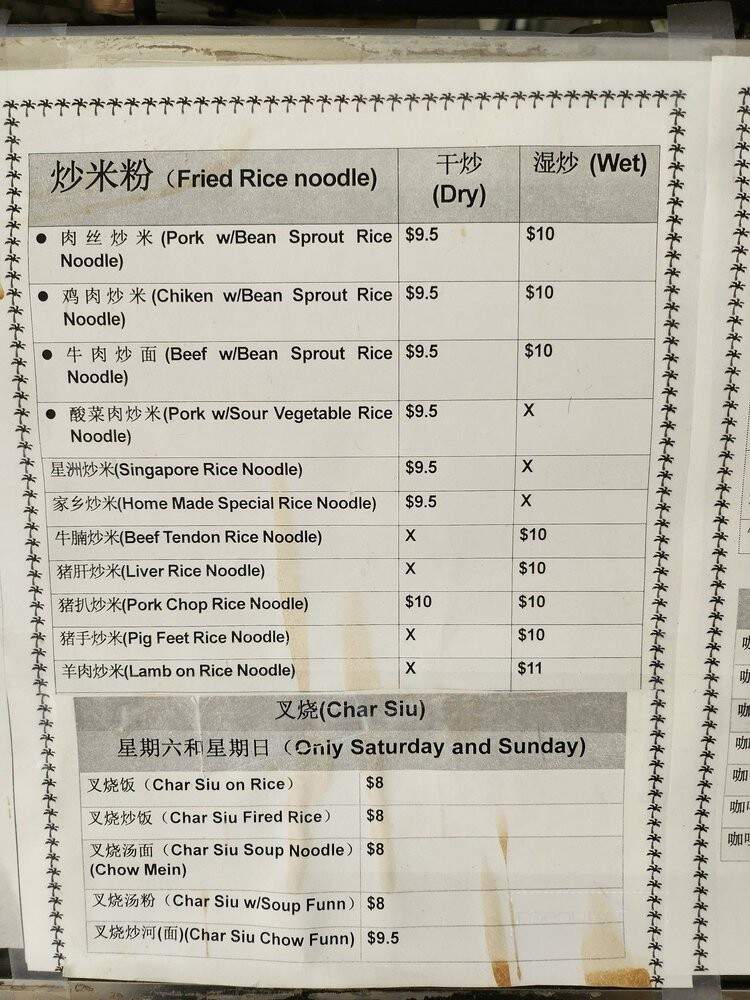 炒米粉（Fried Rice noodle) 干炒 湿炒 (Wet)
(Dry)
● 肉丝炒米(Pork w/Bean Sprout Rice $9.5 $10
Noodle)
● 鸡肉炒米(Chiken w/Bean Sprout Rice $9.5 $10
Noodle)
● 牛肉炒面(Beef w/Bean Sprout Rice $9.5 $10
Noodle)
● 酸菜肉炒米(Pork w/Sour Vegetable Rice $9.5 X
Noodle)
星洲炒米(Singapore Rice Noodle) $9.5 X
家乡炒米(Home Made Special Rice Noodle) $9.5 X
牛腩炒米(Beef Tendon Rice Noodle) X $10
猪肝炒米(Liver Rice Noodle) X $10
猪扒炒米(Pork Chop Rice Noodle) $10 $10
猪手炒米(Pig Feet Rice Noodle) X $10
羊肉炒米(Lamb on Rice Noodle) X $11
叉烧(Char Siu)
星期六和星期日（Only Saturday and Sunday)
叉烧饭（Char Siu on Rice） $8
叉烧炒饭（Char Siu Fired Rice） $8
叉烧汤面（Char Siu Soup Noodle） $8
(Chow Mein)
叉烧汤粉（Char Siu w/Soup Funn） $8
叉烧炒河(面)(Char Siu Chow Funn) $9.5
咖
咖
咖
咖
咖
咖
咖